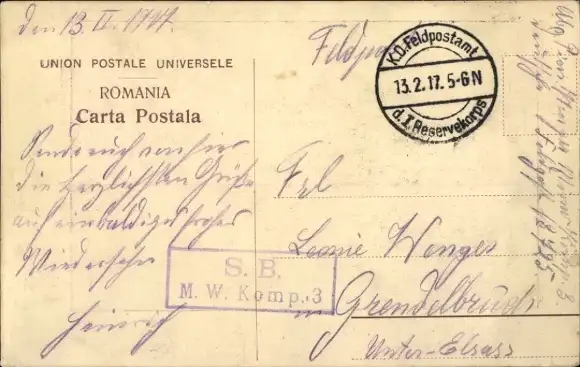 den 13. II. 1917.
Feldpost
K.D. Feldpostamt
13.2.17. 5-6N
d. I. Reservekorps
UNION POSTALE UNIVERSELE
ROMANIA
Carta Postala
Sende euch von hier
die herzlichsten Grüße
auf ein baldiges frohes
Wiedersehen
Heinrich
S. B.
M. W. Komp. 3
Frl
Leonie Wenger
in Grendelbruch
Unter-Elsass